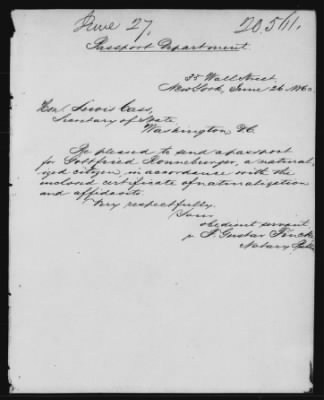 June 27. 20.511.
Passport Department
35 Wall Street,
New York, June 26 1860
Hon Lewis Cass,
Secretary of State
Washington D.C.
Be pleased to send a passport
for Gottfried a natural-
ized citizen, in accordance with the
inclosed certificate of naturalization
and affidavits.
Very respectfully
Your
obedient servant
J. Gustav Fincke
Notary Public